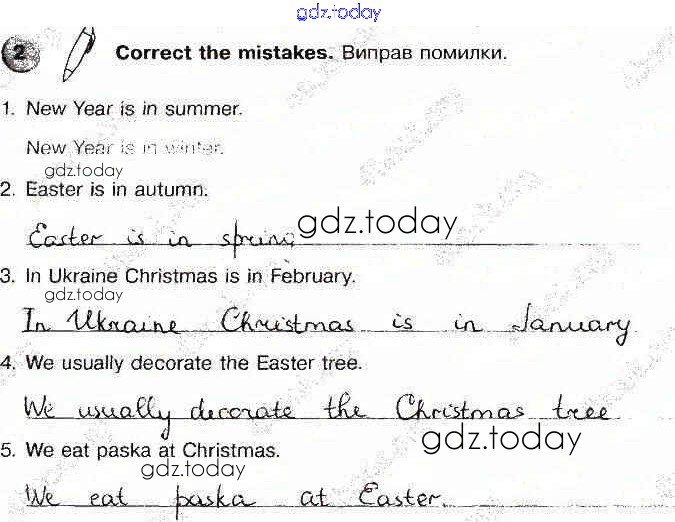 gdz.today
2 Correct the mistakes. Виправ помилки.
1. New Year is in summer.
New Year is in winter.
gdz.today
2. Easter is in autumn.
Easter is in spring
gdz.today
3. In Ukraine Christmas is in February.
gdz.today
In Ukraine Christmas is in January
4. We usually decorate the Easter tree.
We usually decorate the Christmas tree
gdz.today
5. We eat paska at Christmas.
gdz.today
We eat paska at Easter.